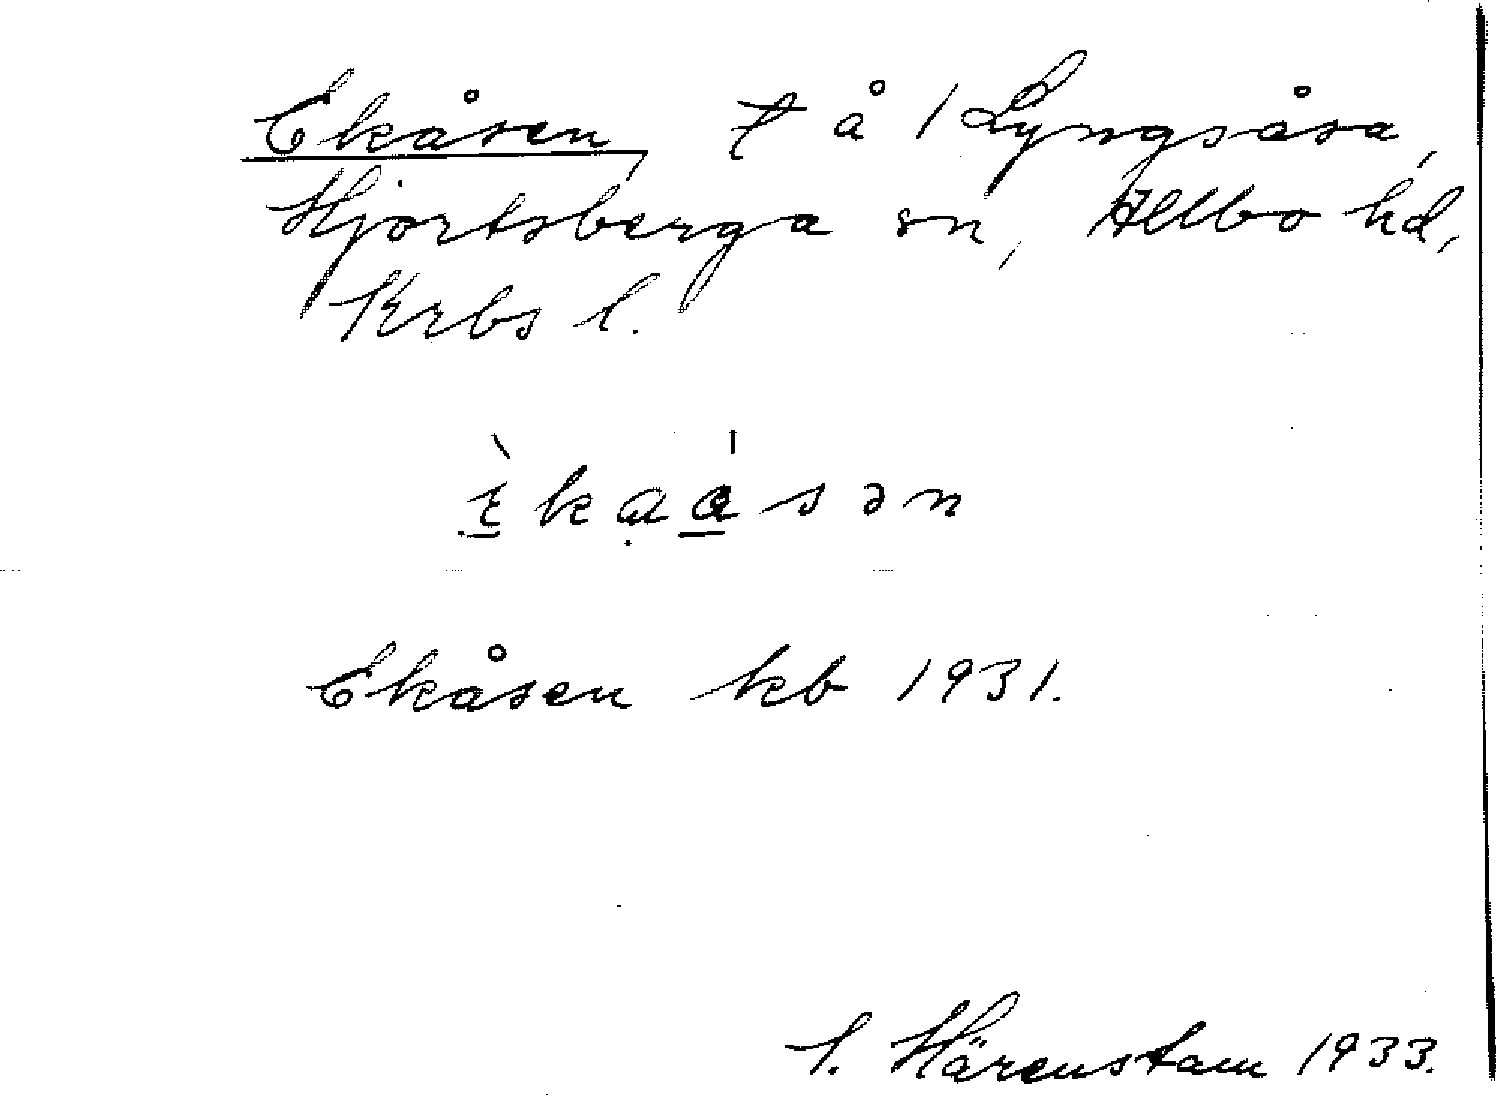 Ekåsen, t å / Lyngsåsa,
Hjortsberga sn, Allbo hd,
Krbs l.
èkaa̍sən
Ekåsen kb 1931.
Härenstam 1933.